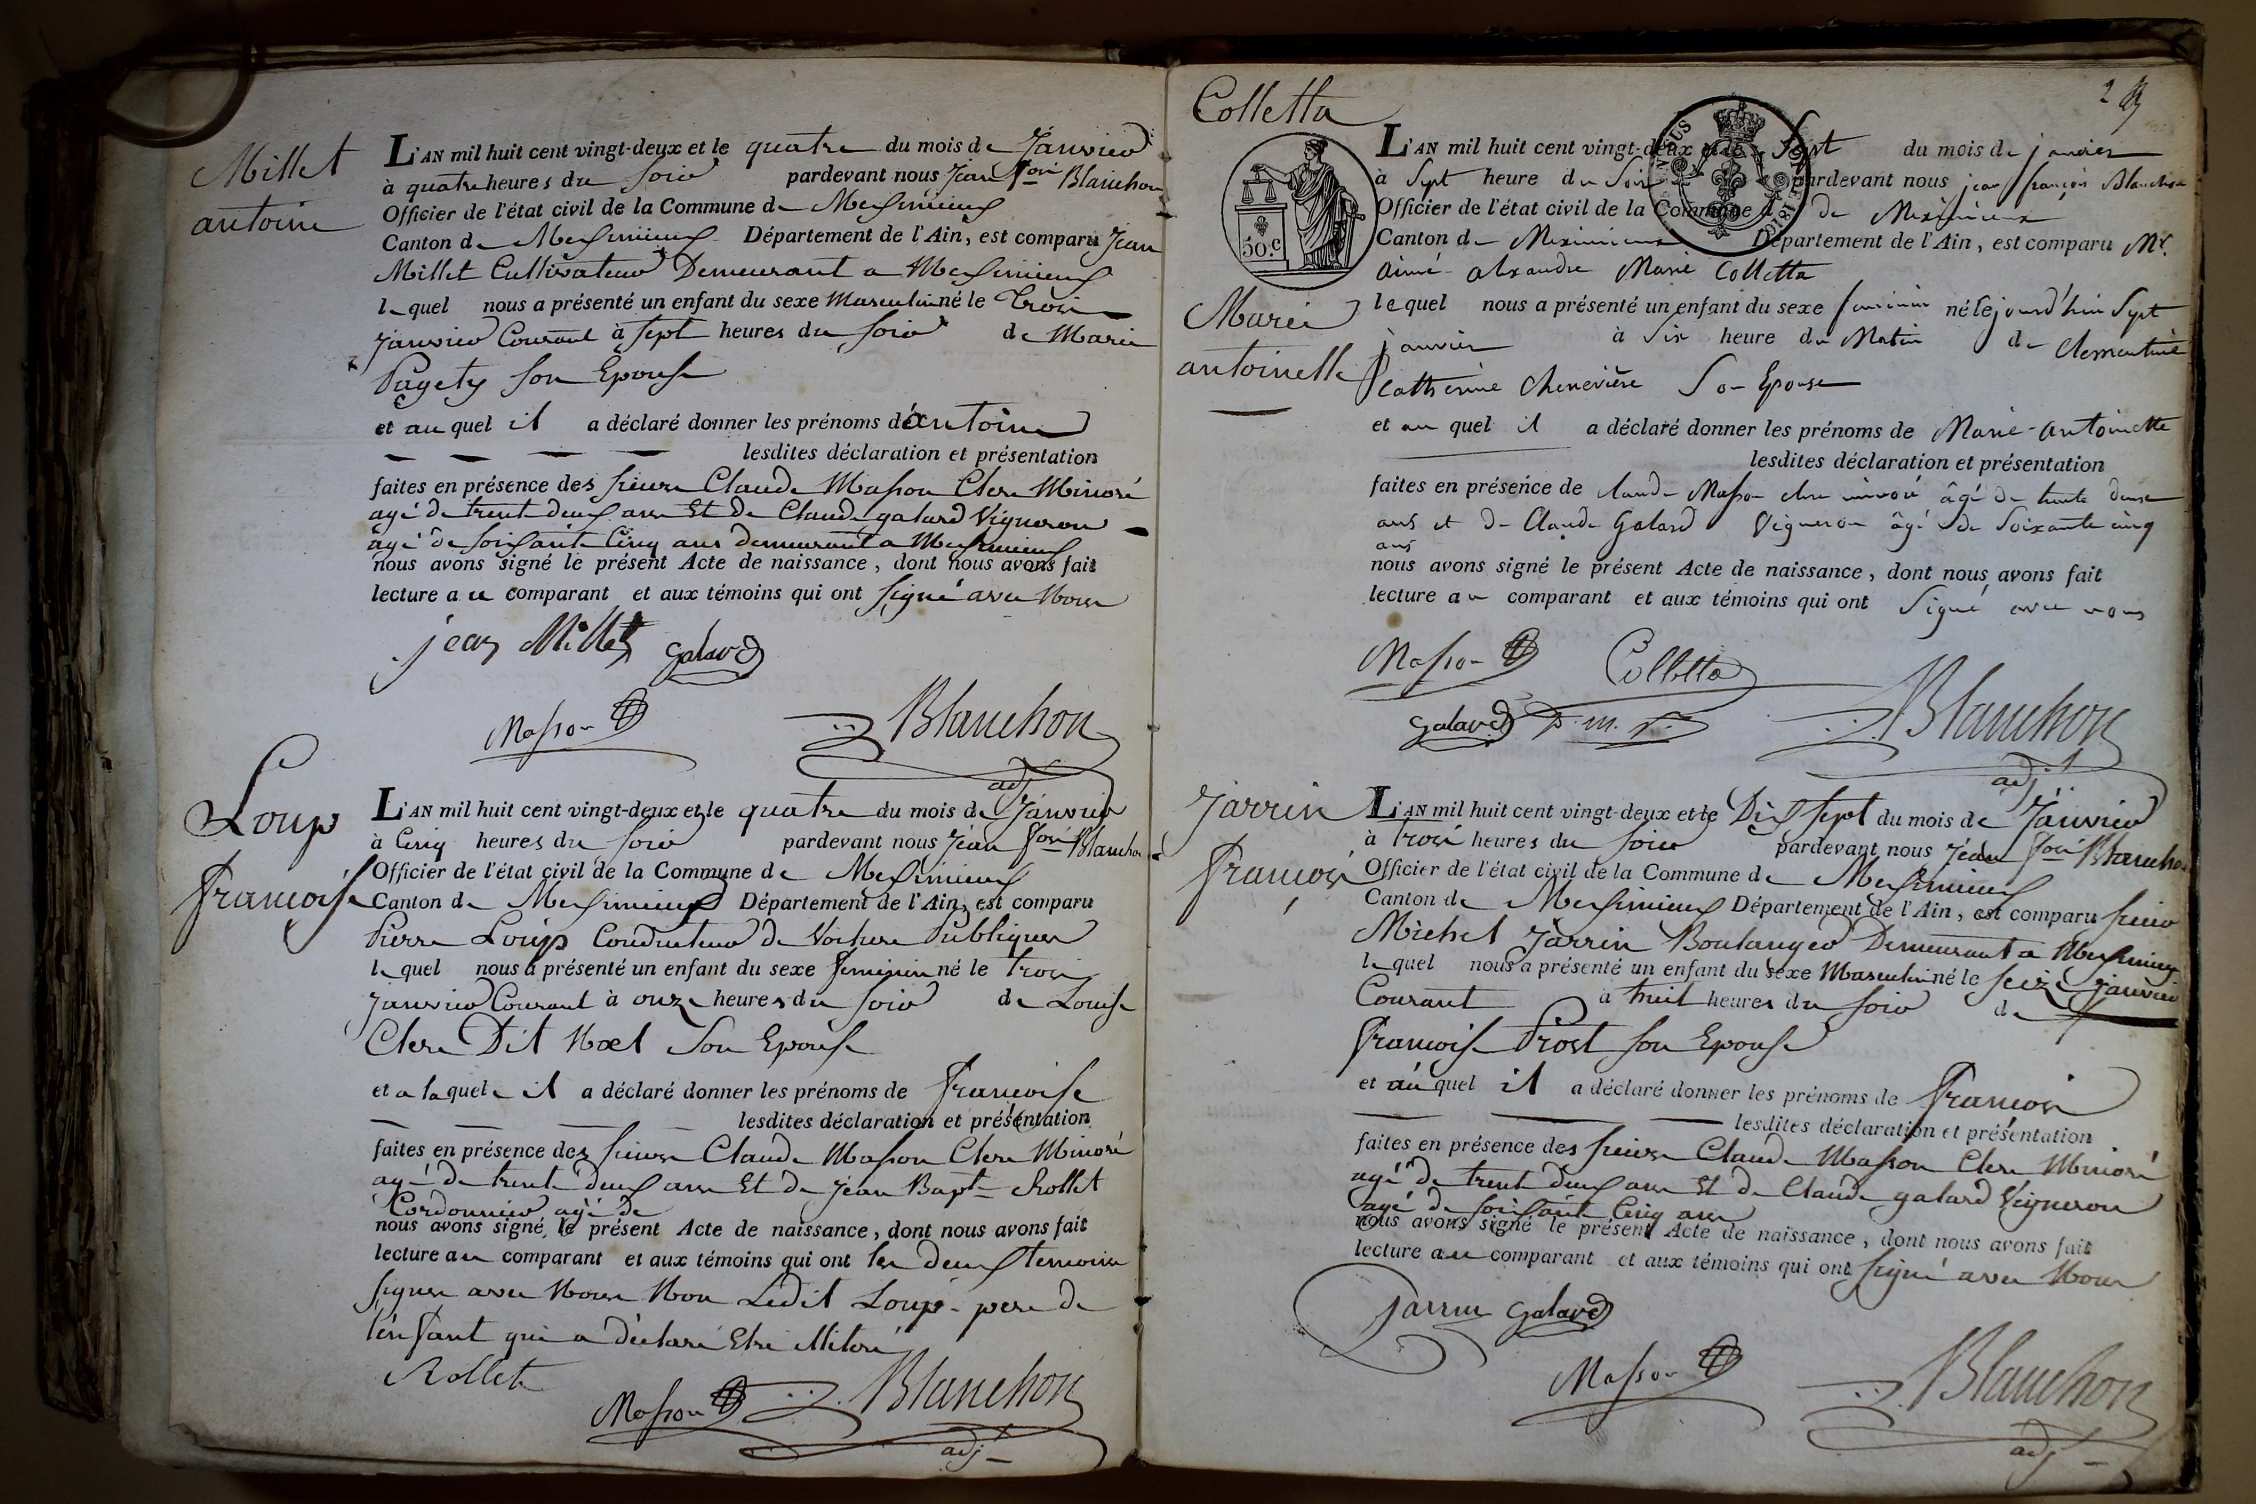 Millet
antoine
L'AN mil huit cent vingt-deux et le quatre du mois de Janvier
à quatre heures du soir pardevant nous Jean fçois Blanchon
Officier de l'état civil de la Commune de Meximieux
Canton de Meximieux Département de l'Ain, est comparu Jean
Millet Cultivateur Demeurant a Meximieux
lequel nous a présenté un enfant du sexe Masculin né le trois
janvier Courant à sept heures du soir de Marie
Pagety son Epouse
et au quel il a déclaré donner les prénoms de antoine
lesdites déclaration et présentation
faites en présence des sieurs Claude Masson Clerc Minoré
agé de trent deux ans Et de Claude galard Vigneron
agé de soixante Cinq ans demeurant a Meximieux
nous avons signé le présent Acte de naissance, dont nous avons fait
lecture au comparant et aux témoins qui ont signé avec Nous
jean Millet galard
Masson Blanchon
adj
Loup
francoise
L'AN mil huit cent vingt-deux et le quatre du mois de Janvier
à Cinq heures du soir pardevant nous Jean fçois Blanchon
Officier de l'état civil de la Commune de Meximieux
Canton de Meximieux Département de l'Ain, est comparu
Pierre Loup Conducteur de Voiture Publiques
lequel nous a présenté un enfant du sexe feminin né le trois
janvier Courant à onze heures du soir de Louise
Clerc Dit Noel Son Epouse
et a laquele il a déclaré donner les prénoms de francoise
lesdites déclaration et présentation
faites en présence des sieurs Claude Masson Clerc Minoré
agé de trent deux ans Et de jean Bapte Rollet
Cordonnier agé de
nous avons signé le présent Acte de naissance, dont nous avons fait
lecture au comparant et aux témoins qui ont les deux temoins
signer avec Nous Non Ledit Loup pere de
l'enfant qui a déclaré Etre illitoré
Rollet
Masson Blanchon
adj
2
Colletta
50.c
Marie
antoinette
L'AN mil huit cent vingt-deux et le Sept du mois de janvier
à Sept heure du Soir pardevant nous jean françois Blanchon
Officier de l'état civil de la Commune de Meximieux
Canton de Meximieux Département de l'Ain, est comparu Mr.
aimé alxandre Marie Colletta
lequel nous a présenté un enfant du sexe feminin né lejourd'hui Sept
janvier à Six heure du Matin de Clementine
Catherine Chenevière Son Epouse
et au quel il a déclaré donner les prénoms de Marie-Antoinette
lesdites déclaration et présentation
faites en présence de Claude Masson clerc minoré âgé de trente deux
ans et de Claude Galard Vigneron âgé de Soixante cinq
ans
nous avons signé le présent Acte de naissance, dont nous avons fait
lecture au comparant et aux témoins qui ont Signé avec nous
Masson Colletta
galard Blanchon
adj
jarrin
françois
L'AN mil huit cent vingt-deux et le Dix sept du mois de Janvier
à trois heures du soir pardevant nous Jean fçois Blanchon
Officier de l'état civil de la Commune de Meximieux
Canton de Meximieux Département de l'Ain, est comparu sieur
Michel Jarrin Boulanger Demeurant a Meximieux
lequel nous a présenté un enfant du sexe Masculin né le seize janvier
Courant à huit heures du soir de
françoise Prost son Epouse
et au quel il a déclaré donner les prénoms de françois
lesdites déclaration et présentation
faites en présence des sieurs Claude Masson Clerc Minoré
agé de trent deux ans Et de Claude galard Vigneron
agé de soixante Cinq ans
nous avons signé le présent Acte de naissance, dont nous avons fait
lecture au comparant et aux témoins qui ont signé avec Nous
jarrin galard
Masson Blanchon
adj